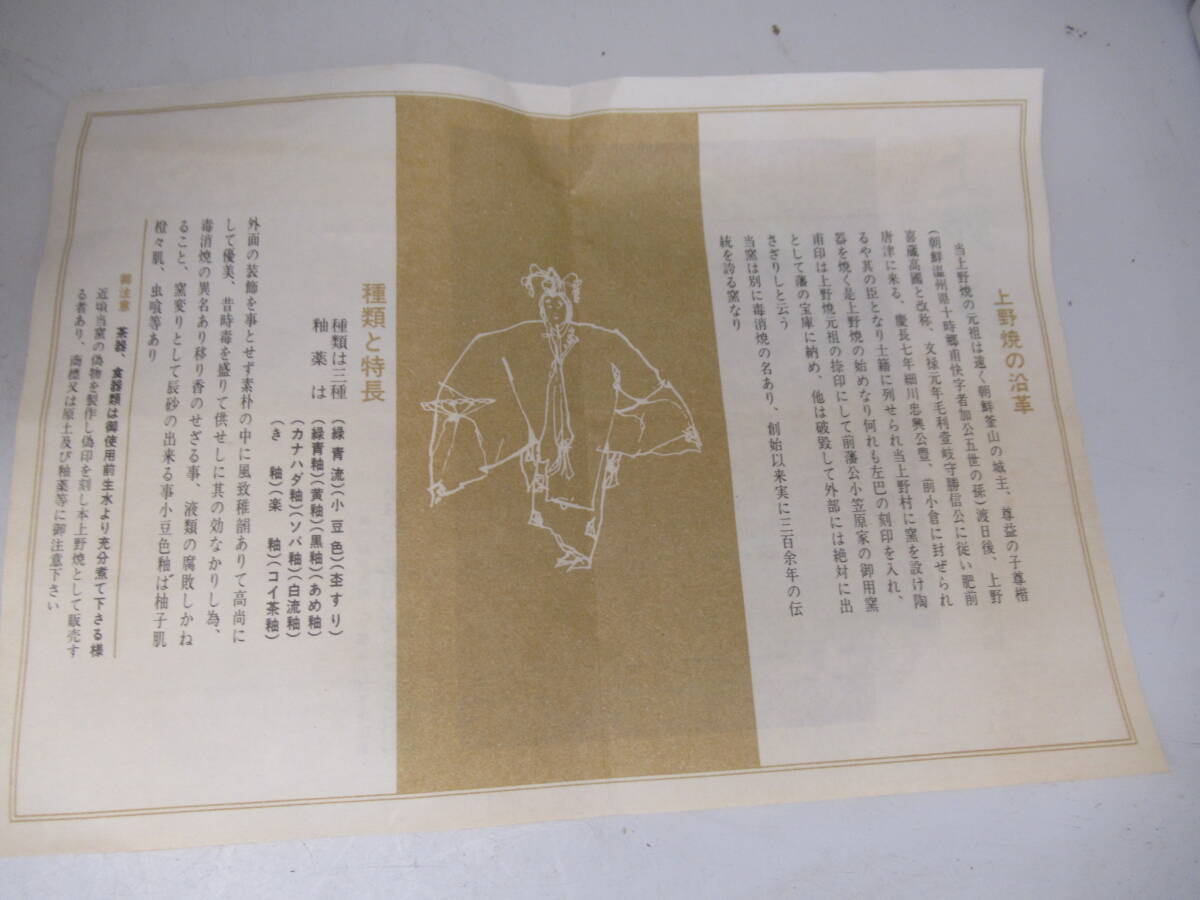 上野焼の沿革
当上野焼の元祖は遠く朝鮮釜山の城主、尊益の子尊楷
(朝鮮温州県十時郷甫快字者加公五世の孫)渡日後、上野
喜蔵高國と改称、文禄元年毛利壹岐守勝信公に従い肥前
唐津に来る、慶長七年細川忠興公豊、前小倉に封ぜられ
るや其の臣となり士籍に列せられ当上野村に窯を設け陶
器を焼く是上野焼の始めなり何れも左巴の刻印を入れ、
甫印は上野焼元祖の捺印にして前藩公小笠原家の御用窯
として藩の宝庫に納め、他は破毀して外部には絶対に出
さざりしと云う
当窯は別に毒消焼の名あり、創始以来実に三百余年の伝
統を誇る窯なり
種類と特長
種類は三種(緑青流)(小豆色)(杢すり)
釉薬は(緑青釉)(黄釉)(黒釉)(あめ釉)
(カナハダ釉)(ソバ釉)(白流釉)
(き釉)(楽釉)(コイ茶釉)
外面の装飾を事とせず素朴の中に風致稚韻ありて高尚に
して優美、昔時毒を盛りて供せしに其の効なかりし為、
毒消焼の異名あり移り香のせざる事、液類の腐敗しかね
ること、窯変りとして辰砂の出来る事小豆色釉ば柚子肌
橙々肌、虫喰等あり
御注意 茶器、食器類は御使用前生水より充分煮て下さる様
近頃当窯の偽物を製作し偽印を刻し本上野焼として販売す
る者あり、商標又は原土及び釉薬等に御注意下さい